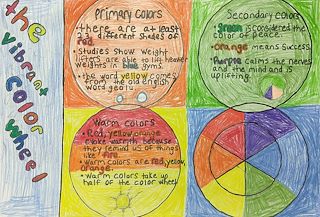 the vibrant color wheel
Primary colors
there are at least
23 different shades of
red.
Studies show weight
lifters are able to lift heavier
weights in blue gyms.
the word yellow comes
from the old english
word geolu
Secondary colors
green is considered the
color of peace.
Orange means success.
Purple calms the nerves
and the mind and is
uplifting.
Warm colors
Red, yellow, orange
evoke warmth because
they remind us of things
like fire.
Warm colors are red, yellow,
orange.
Warm colors take up
half of the color wheel